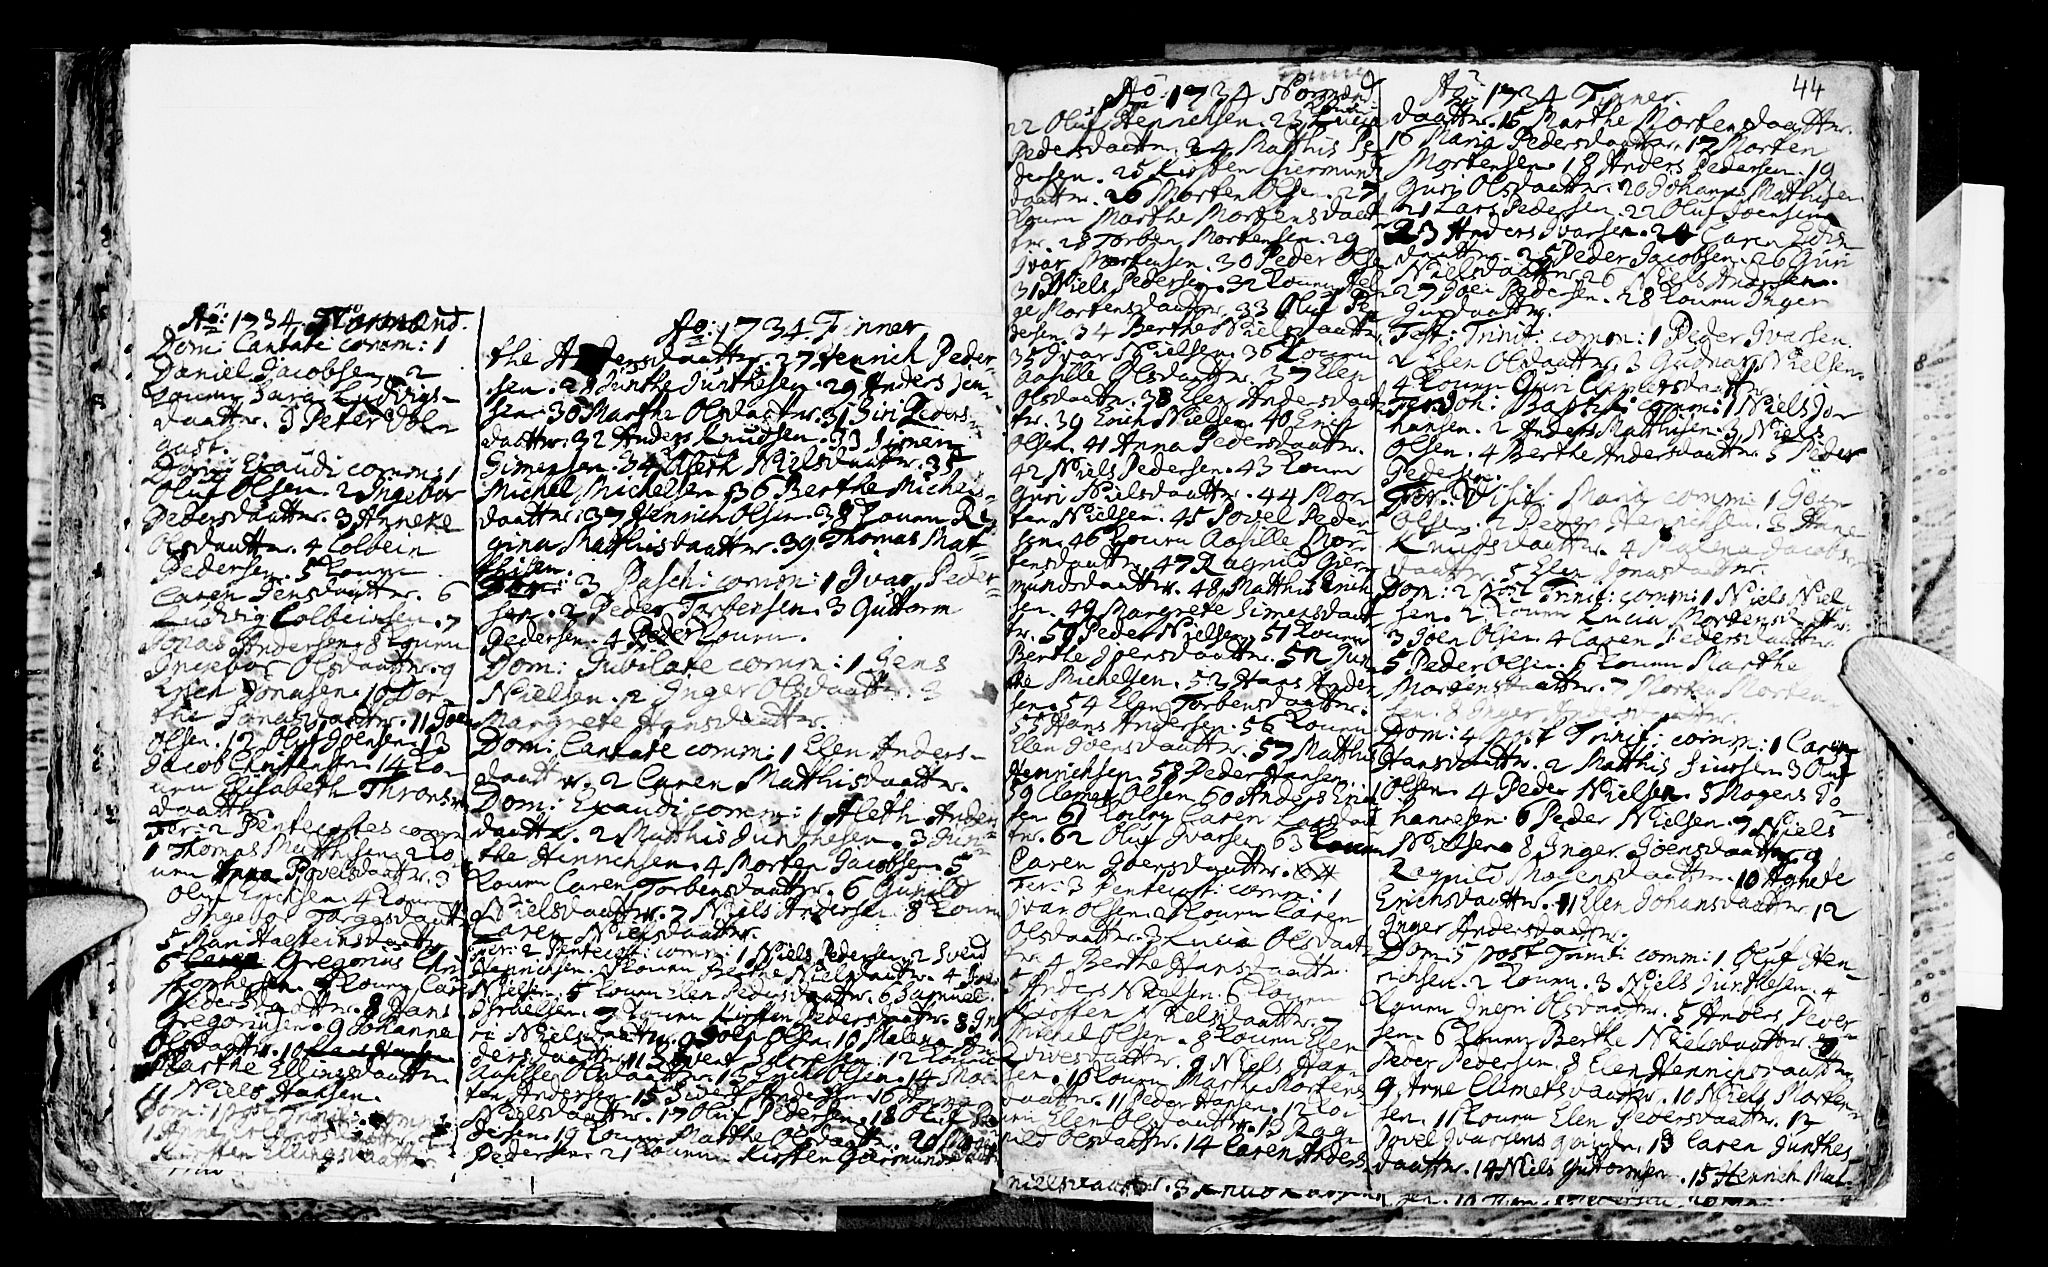 Aō: 1734. Normænd.
Dom: Cantate comm: 1
Daniel Jacobsen. 2
Konny Sara Ludvigs-
daatter. 3 Peter
Dom: Exaudi comm: 1
Oluf Olsen. 2 Ingebor
Pedersdaatter. 3 Anneke
Olsdaatter. 4 Colbein
Pedersen. 5 Konnn
Caren Jensdaatter. 6
Ludvig Colbeinsen. 7
Jonas Andersen. 8 Konnn
Ingebor Olsdaatter. 9
Erich Jonasen. 10 Dor-
the Jonasdaatter. 11 Joen
Olsen. 12 Oluf Joensen. 13
Jacob Christensen. 14 Ko-
nen Elisabeth Throns-
daatter
Fer: 2 Pentecostes comm
1 Thomas Matthisen. 2 Ko-
nen Anna Povelsdaatter. 3
Oluf Erichsen. 4 Konnn
Ingebor
5 Mari Halsteinsdaatter
6 Gregorius Chri-
stophersen. 7 Konnn Caren
Pedersdaatter. 8 Hans
Gregoriusen. 9 Johanne
Olsdaatter. 10
Marthe Ellingsdaatter
11 Niels Hansen.
Dom: 1 post Trinit: comm:
Kirsten Ellingsdaatter
Aō: 1734. Finner
the daatter. 27 Henrich Peder-
sen. 28 Junthe Junthesen. 29 Anders Jen-
sen. 30 Marthe Olsdaatter. 31 Siri Peders-
daatter. 32 Anders Knudsen. 33 Simen
Simensen. 34 Aleth Nielsdaatter. 35
Michel Michelsen. 36 Berthe Michels-
daatter. 37 Henrich Olsen. 38 Konnn Re-
gina Matthisdaatter. 39 Thomas Mat-
thisen.
Fer: 3 Pasch: comm: 1 Ivar Peder-
sen. 2 Peder Torbensen. 3 Guttorm
Pedersen. 4 Peder Konnn.
Dom: Jubilate comm: 1 Jens
Nielsen. 2 Inger Olsdaatter. 3
Margrete Hansdaatter.
Dom: Cantate comm: 1 Elen Anders-
daatter. 2 Caren Matthisdaatter.
Dom: Exaudi comm: 1 Aleth Anders-
daatter. 2 Matthis Junthesen. 3 Jun-
the Henrichsen. 4 Morten Jacobsen. 5
Konnn Caren Torbensdaatter. 6 Gunild
Nielsdaatter. 7 Niels Andersen. 8 Konnn
Caren Nielsdaatter.
Fer: 2 Pentecost: comm: 1 Niels Pedersen. 2 Svend
Henrichsen. 3 Konnn Berthe Nielsdaatter. 4
Nielsen. 5 Konnn Elen Pedersdaatter. 6 Samuel
Isralsen. 7 Konnn Kirsten Pedersdaatter. 8
Nielsdaatter. 9 Joen Olsen. 10 Malena
dersdaatter. 11 12
Aasille Olsdaatter. 13 Erich Olsen. 14 Mor-
ten Andersen. 15 Siver Andersen. 16 Anna
Nielsdaatter. 17 Oluf Pedersen. 18 Oluf Pe-
dersen. 19 Konnn Marthe Olsdaatter. 20
Pedersen. 21 Konnn Kirsten Giermundsdaatter
Aō: 1734 Normænd
22 Oluf Henrichsen. 23 Lucia
Pedersdaatter. 24 Matthis Pe-
dersen. 25 Kirsten Giermunds
daatter. 26 Morten Olsen. 27
Konnn Marthe Mortensdaat-
ter. 28 Torben Mortensen. 29
Ivar Mortensen. 30 Peder Olsen
31 Niels Pedersen. 32 Konnn Hel-
ge Mortensdaatter. 33 Oluf Pe-
dersen. 34 Berthe Nielsdaatter.
35 Ivar Nielsen. 36 Konnn
Aasille Olsdaatter. 37 Elen
Olsdaatter. 38 Elen Andersdaat-
ter. 39 Erich Nielsen. 40 Erich
Olsen. 41 Anna Pedersdaatter.
42 Niels Pedersen. 43 Konnn
Guri Nielsdaatter. 44 Mor-
ten Nielsen. 45 Povel Peder-
sen. 46 Konnn Aasille Mor-
tensdaatter. 47 Ragnild Gier-
mundsdaatter. 48 Matthis Erich
sen. 49 Margrete Simensdaat
ter. 50 Peder Nielsen. 51 Konnn
Berthe Joensdaatter. 52 Jun-
the Michelsen. 53 Hans Ander
sen. 54 Elen Torbensdaatter.
55 Hans Andersen. 56 Konnn
Elen Joensdaatter. 57 Matthis
Henrichsen. 58 Peder Hansen.
59 Clemet Olsen. 60 Anders Erich
sen. 61 Konnn Caren
ter. 62 Oluf Ivarsen. 63 Konnn
Caren Joensdaatter. 64
Fer: 3 Pentecost: comm: 1
Ivar Olsen. 2 Konnn Caren
Olsdaatter. 3 Lucia Olsdaat-
ter. 4 Berthe Hansdaatter.
5 Anders Nielsen. 6 Konnn
Kirsten Nielsdaatter. 7
Michel Olsen. 8 Konnn Elen
daatter. 9 Niels Han-
sen. 10 Konnn Marthe Mortens
daatter. 11 Peder Hansen. 12 Ko-
nen Elen Olsdaatter. 13 Rag-
nild Olsdaatter. 14 Caren Anders
Nielsdaatter. 3
44
Aō: 1734 Finner
daatter. 15 Marthe Mortensdaatter.
16 Maria Pedersdaatter. 17 Morten
Mortensen. 18 Anders Pedersen. 19
Guri Olsdaatter. 20 Johannes Matthisen
21 Lars Pedersen. 22 Oluf Joensen
23 Anders Ivarsen. 24 Caren
daatter. 25 Peder Jacobsen. 26 Guri
Nielsdaatter. 26 Niels Andersen.
27 Joen Pedersen. 28 Konnn Inger
daatter.
Fest: Trinit: comm: 1 Peder Ivarsen.
2 Elen Olsdaatter. 3 Gudmar Nielsen.
4 Konnn Guri Clemetsdaatter.
Fer: Joh: Baptist: comm: 1 Niels Jo-
hansen. 2 Anders Matthisen. 3 Niels
Olsen. 4 Berthe Andersdaatter. 5 Peder
Pedersen.
Fer: Visit: Mariæ comm: 1 Joen
Olsen. 2 Peder Henrichsen. 3 Anne
Knudsdaatter. 4 Malena Jacobs
daatter. 5 Elen Jonasdaatter.
Dom: 2 post Trinit: comm: 1 Niels Niel-
sen. 2 Konnn Lucia Mortensdaatter.
3 Joen Olsen. 4 Caren Pedersdaatter.
5 Peder Olsen. 6 Konnn Marthe
Mortensdaatter. 7 Morten Morten-
sen. 8 Inger Andersdaatter.
Dom: 4 post Trinit: comm: 1 Caren
Hansdaatter. 2 Matthis Siursen. 3 Oluf
Olsen. 4 Peder Nielsen. 5 Mogens Jo-
hannesen. 6 Peder Nielsen. 7 Niels
Nielsen. 8 Inger Joensdaatter. 9
Ragnild Mogensdaatter. 10 Agnete
Erichsdaatter. 11 Elen Johansdaatter. 12
Inger Andersdaatter.
Dom: 5 post Trinit: comm: 1 Oluf Hen-
richsen. 2 Konnn. 3 Niels Junthesen. 4
Konnn Ingri Olsdaatter. 5 Anders Peder-
sen. 6 Konnn Berthe Nielsdaatter. 7
Peder Pedersen. 8 Elen Henningsdaatter
9 Arne Clemetsdaatter. 10 Niels Morten-
sen. 11 Konnn Elen Pedersdaatter. 12
Povel Ivarsens qvinde. 13 Caren Junthes
daatter. 14 Niels Guttormsen. 15 Henrich Mat-